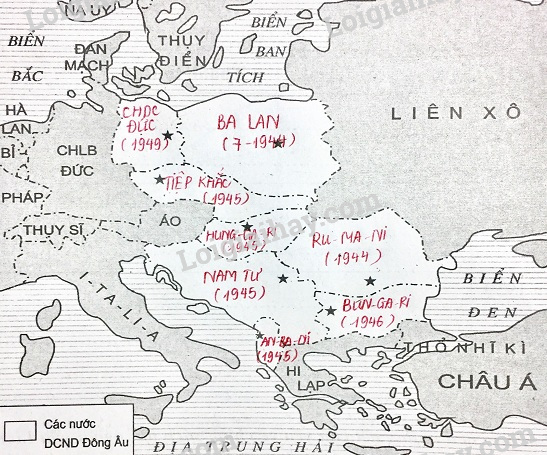 NA UY
BIỂN
BẮC
ĐAN
MẠCH
THỤY
ĐIỂN
BIỂN
BAN
TÍCH
LIÊN XÔ
HÀ
LAN
BỈ
CHLB
ĐỨC
PHÁP
THỤY SĨ
ÁO
I-TA-LI-A
CHDC
ĐỨC
(1949)
BA LAN
(7-1944)
TIỆP KHẮC
(1945)
HUNG-GA-RI
(1945)
RU-MA-NI
(1944)
NAM TƯ
(1945)
BUN-GA-RI
(1946)
AN-BA-NI
(1945)
BIỂN
ĐEN
THỔ NHĨ KÌ
HI
LẠP
CHÂU Á
ĐỊA TRUNG HẢI
Các nước
DCND Đông Âu
Loigiaihay.com
Loigiaihay.com
Loigiaihay.com